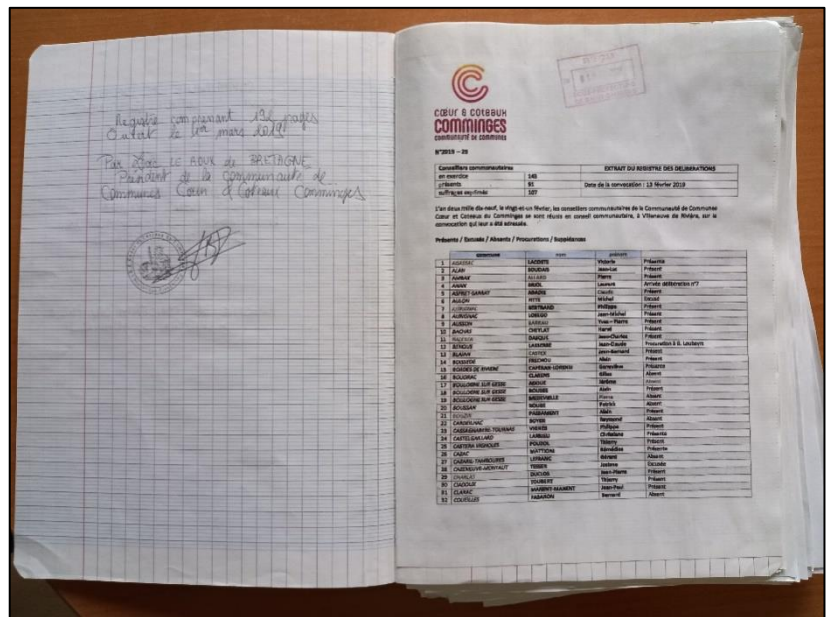 Registre comprenant 192 pages
Ouvert le 1er mars 2019
Par LE ROUX de BRETAGNE
Président de la Communauté de
Communes Coeur & Coteaux Comminges
cœur & coteaux
COMMINGES
communauté de communes
N°2019 – 26
Conseillers communautaires EXTRAIT DU REGISTRE DES DELIBERATIONS
en exercice 145
présents 91 Date de la convocation : 13 février 2019
suffrages exprimés 107
L'an deux mille dix-neuf, le vingt-et-un février, les conseillers communautaires de la Communauté de Communes
Cœur et Coteaux du Comminges se sont réunis en conseil communautaire, à Villeneuve de Rivière, sur la
convocation qui leur a été adressée.
Présents / Excusés / Absents / Procurations / Suppléances
commune nom prénom
1 Présente
2 ALAN SOUDAIS Jean-Luc Présent
3 Pierre Présent
4 Laurent Arrivée délibération n°7
5 ABADIE Claude Présent
6 AULON Michel Excusé
7 BERTRAND Philippe Présent
8 AURIGNAC LOSEGO Jean-Michel Présent
9 AUSSON Yves – Pierre Présent
10 CHEYLAT Hervé Présent
11 Jean-Charles Présent
12 LASSERRE Jean-Claude Procuration à
13 BLAJAN CASTEX Jean-Bernard Présent
14 BOISSEDE FRECHOU Alain Présent
15 BORDES DE RIVIERE Geneviève Présente
16 BOUDRAC CLARENS Gilles Absent
17 BOULOGNE SUR GESSE Jérôme Absent
18 BOULOGNE SUR GESSE Alain Présent
19 BOULOGNE SUR GESSE MEDEVIELLE Pierre Absent
20 BOUSSAN Patrick Absent
21 Alain Présent
22 CARDEILHAC BOYER Raymond Absent
23 CASSAGNABERE-TOURNAS VIGNES Philippe Présent
24 CASTELGAILLARD Christiane Présente
25 CASTERA VIGNOLES Thierry Présent
26 CAZAC MATTIONI Bénédicte Présente
27 CAZARIL-TAMBOURES LEFRANC Gérard Absent
28 CAZENEUVE-MONTAUT Josiane Excusée
29 CHARLAS DUCLOS Jean-Pierre Présent
30 CIADOUX Thierry Présent
31 CLARAC Jean-Paul Présent
32 COUEILLES Bernard Absent